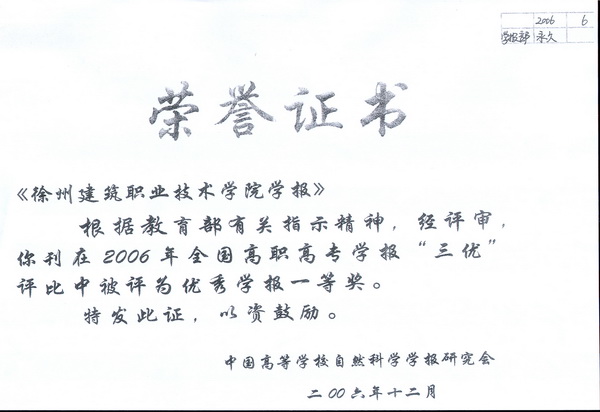 2006 6
学报部 永久
荣誉证书
《徐州建筑职业技术学院学报》
根据教育部有关指示精神，经评审，
你刊在2006年全国高职高专学报“三优”
评比中被评为优秀学报一等奖。
特发此证，以资鼓励。
中国高等学校自然科学学报研究会
二00六年十二月